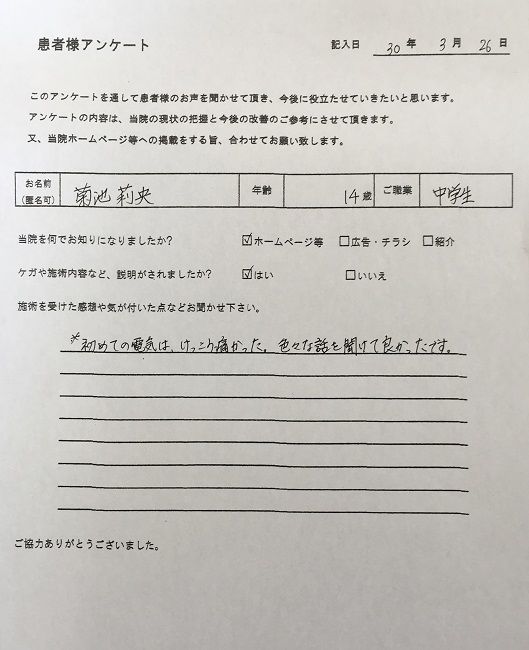 患者様アンケート
記入日 30 年 3 月 26 日
このアンケートを通して患者様のお声を聞かせて頂き、今後に役立たせていきたいと思います。
アンケートの内容は、当院の現状の把握と今後の改善のご参考にさせて頂きます。
又、当院ホームページ等への掲載をする旨、合わせてお願い致します。
お名前(匿名可) 菊池 莉央 年齢 14歳 ご職業 中学生
当院を何でお知りになりましたか? ☑ホームページ等 □広告・チラシ □紹介
ケガや施術内容など、説明がされましたか? ☑はい □いいえ
施術を受けた感想や気が付いた点などお聞かせ下さい。
*初めての電気は、けっこう痛かった。色々な話を聞けて良かったです。
ご協力ありがとうございました。